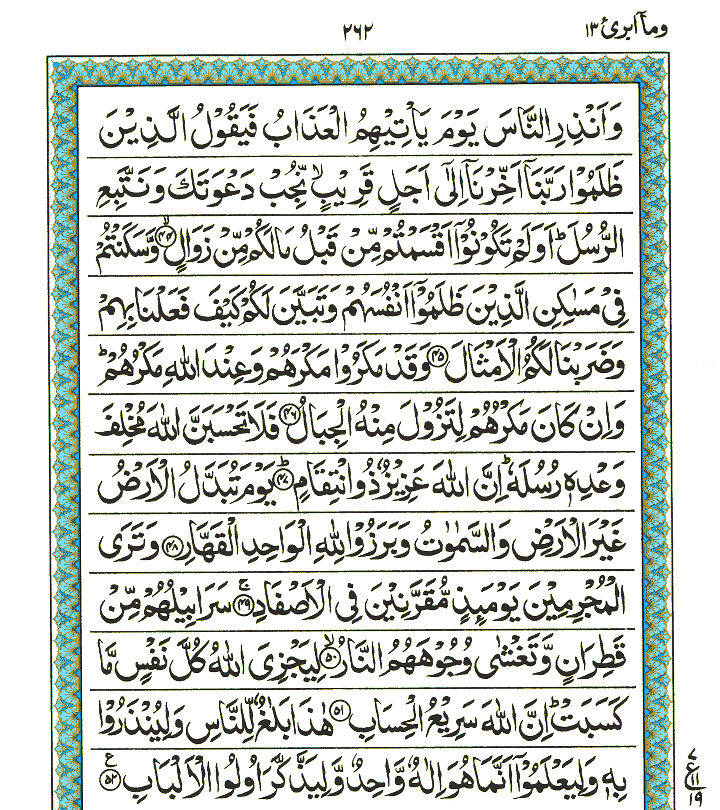 وما ابرئ ١٣
٢٦٢
وَاَنْذِرِ النَّاسَ يَوْمَ يَاْتِيْهِمُ الْعَذَابُ فَيَقُوْلُ الَّذِيْنَ
ظَلَمُوْا رَبَّنَاۤ اَخِّرْنَاۤ اِلٰۤى اَجَلٍ قَرِيْبٍۙ نُّجِبْ دَعْوَتَكَ وَنَتَّبِعِ
الرُّسُلَؕ اَوَلَمْ تَكُوْنُوْۤا اَقْسَمْتُمْ مِّنْ قَبْلُ مَا لَكُمْ مِّنْ زَوَالٍۙ ﴿۴۴﴾ وَّسَكَنْتُمْ
فِيْ مَسٰكِنِ الَّذِيْنَ ظَلَمُوْۤا اَنْفُسَهُمْ وَتَبَيَّنَ لَكُمْ كَيْفَ فَعَلْنَا بِهِمْ
وَضَرَبْنَا لَكُمُ الْاَمْثَالَ ﴿۴۵﴾ وَقَدْ مَكَرُوْا مَكْرَهُمْ وَعِنْدَ اللّٰهِ مَكْرُهُمْؕ
وَاِنْ كَانَ مَكْرُهُمْ لِتَزُوْلَ مِنْهُ الْجِبَالُ ﴿۴۶﴾ فَلَا تَحْسَبَنَّ اللّٰهَ مُخْلِفَ
وَعْدِهٖ رُسُلَهٗؕ اِنَّ اللّٰهَ عَزِيْزٌ ذُو انْتِقَامٍؕ ﴿۴۷﴾ يَوْمَ تُبَدَّلُ الْاَرْضُ
غَيْرَ الْاَرْضِ وَالسَّمٰوٰتُ وَبَرَزُوْا لِلّٰهِ الْوَاحِدِ الْقَهَّارِ ﴿۴۸﴾ وَتَرَى
الْمُجْرِمِيْنَ يَوْمَىِٕذٍ مُّقَرَّنِيْنَ فِي الْاَصْفَادِۚ ﴿۴۹﴾ سَرَابِيْلُهُمْ مِّنْ
قَطِرَانٍ وَّتَغْشٰى وُجُوْهَهُمُ النَّارُۙ ﴿۵۰﴾ لِيَجْزِيَ اللّٰهُ كُلَّ نَفْسٍ مَّا
كَسَبَتْؕ اِنَّ اللّٰهَ سَرِيْعُ الْحِسَابِ ﴿۵۱﴾ هٰذَا بَلٰغٌ لِّلنَّاسِ وَلِيُنْذَرُوْا
بِهٖ وَلِيَعْلَمُوْۤا اَنَّمَا هُوَ اِلٰهٌ وَّاحِدٌ وَّلِيَذَّكَّرَ اُولُوا الْاَلْبَابِ ﴿۵۲﴾ ع
٧
ع
١١
١٩